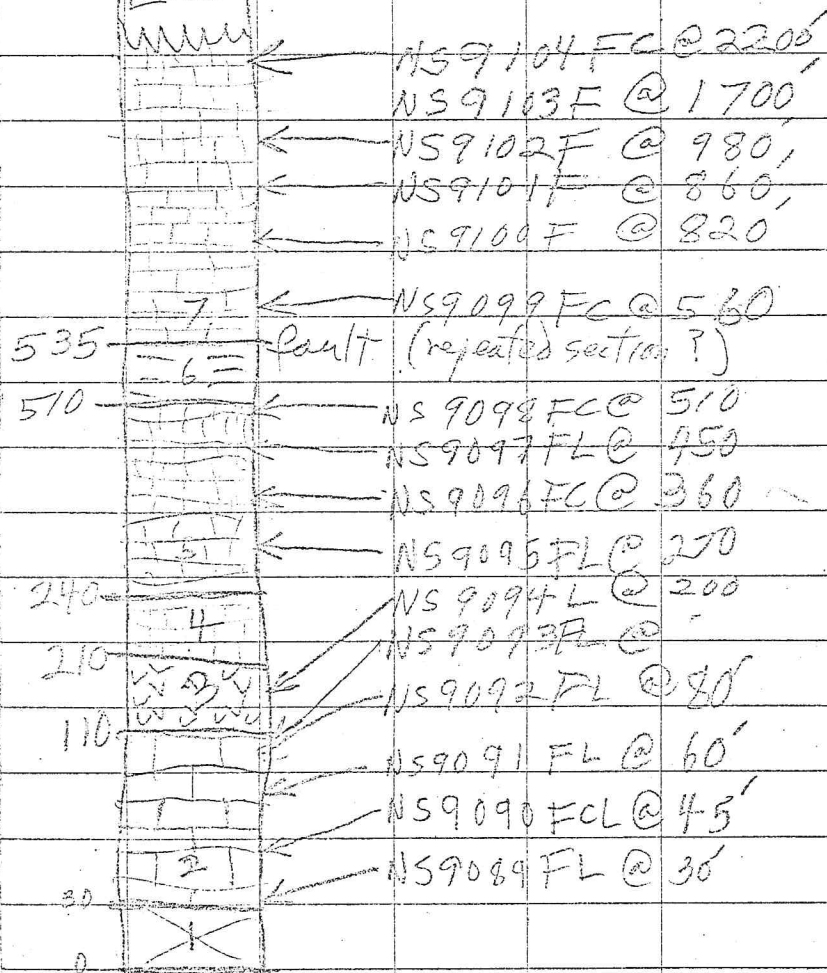 NS9104FC @ 2200'
NS9103F @ 1700'
NS9102F @ 980'
NS9101F @ 860'
NS9100F @ 820'
7 NS9099FC @ 560
535 fault (repeated section?)
6
510 NS9098FC @ 510
NS9097FL @ 450
NS9096FC @ 360
5 NS9095FL @
240 NS9094L @ 200
4 NS9093FL @
210
3 NS9092FL @ 80'
110
NS9091FL @ 60'
NS9090FCL @ 45'
2 NS9089FL @ 30'
30
1
0